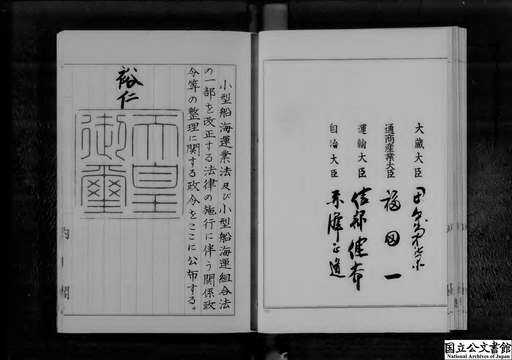 大蔵大臣 田中角榮
通商産業大臣 福田一
運輸大臣 綾部健太郎
自治大臣 赤澤正道
小型船海運業法及び小型船海運組合法
の一部を改正する法律の施行に伴う関係政
令等の整理に関する政令をここに公布する。
裕仁
天皇
御璽
内閣
国立公文書館
National Archives of Japan